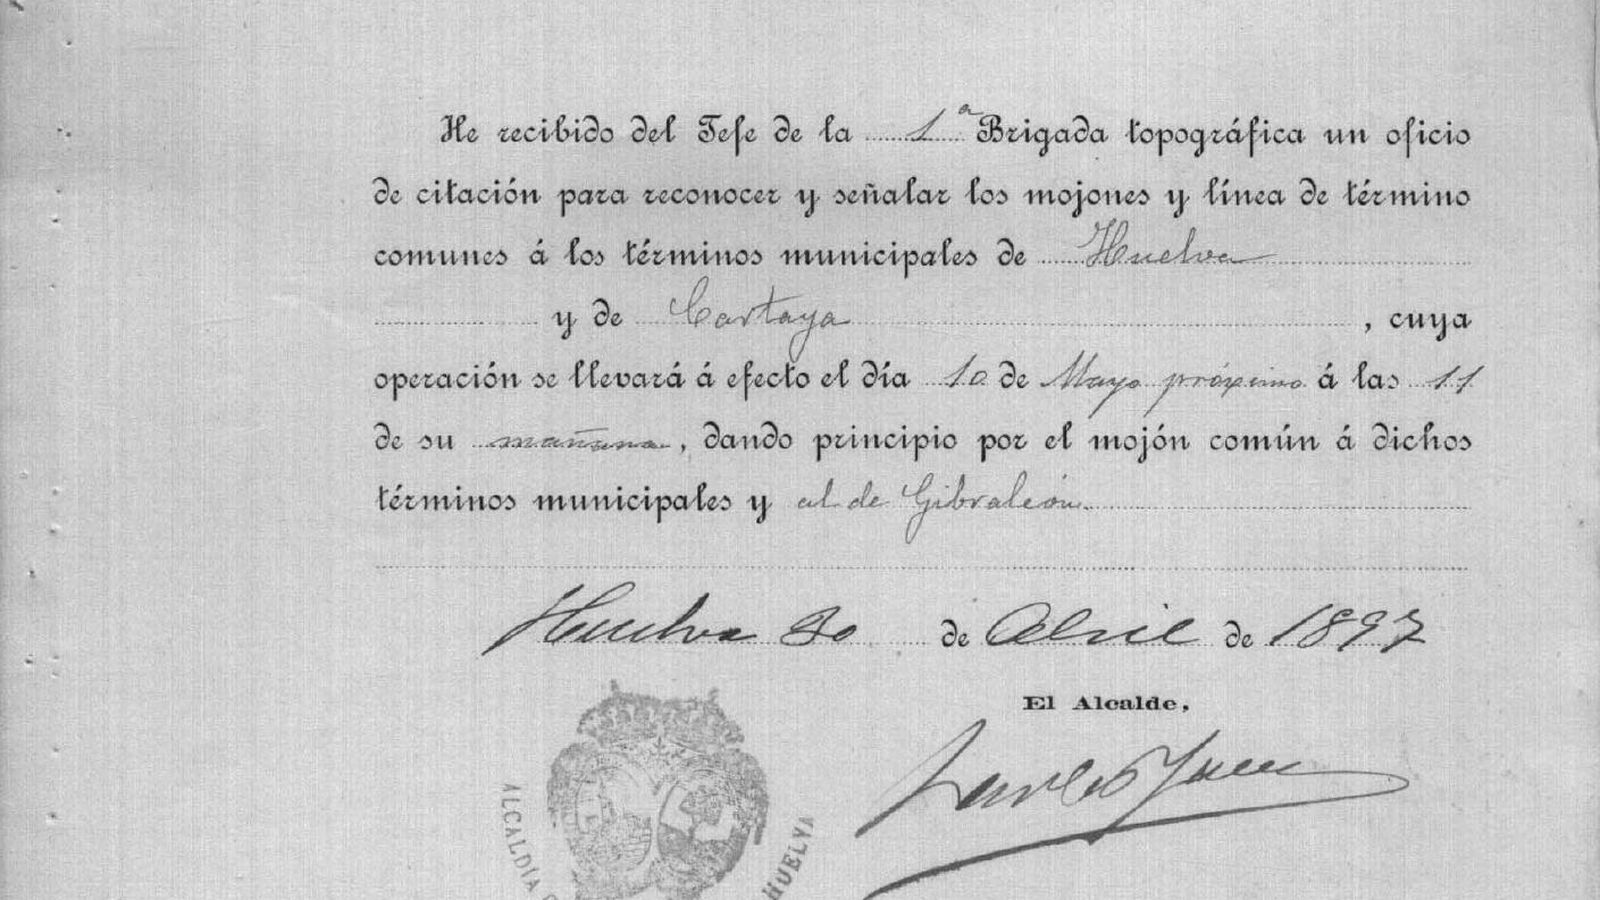 He recibido del Jefe de la 1ª Brigada topográfica un oficio
de citación para reconocer y señalar los mojones y línea de término
comunes á los términos municipales de Huelva
y de Cartaya, cuya
operación se llevará á efecto el día 10 de Mayo próximo á las 11
de su mañana, dando principio por el mojón común á dichos
términos municipales y al de Gibraleón.
Huelva 30 de Abril de 1897
El Alcalde,
ALCALDÍA
HUELVA